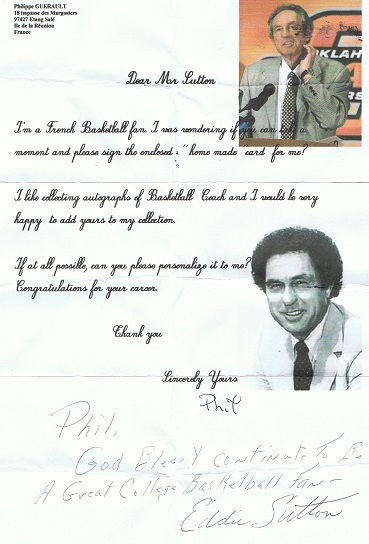 Philippe GUERAULT
18 impasse des Margosiers
97427 Etang Salé
Ile de la Réunion
France
OKLAH
Dear Mr Sutton
I'm a French Basketball fan. I was wondering if you can take a
moment and please sign the enclosed "home made card for me?
I like collecting autographs of Basketball Coach and I would be very
happy to add yours to my collection.
If at all possille, can you please personalize it to me?
Congratulations for your career.
Thank you
Sincerely Yours
Phil
Phil,
God Bless & continute To Be
A Great College Basketball Fan-
Eddie Sutton